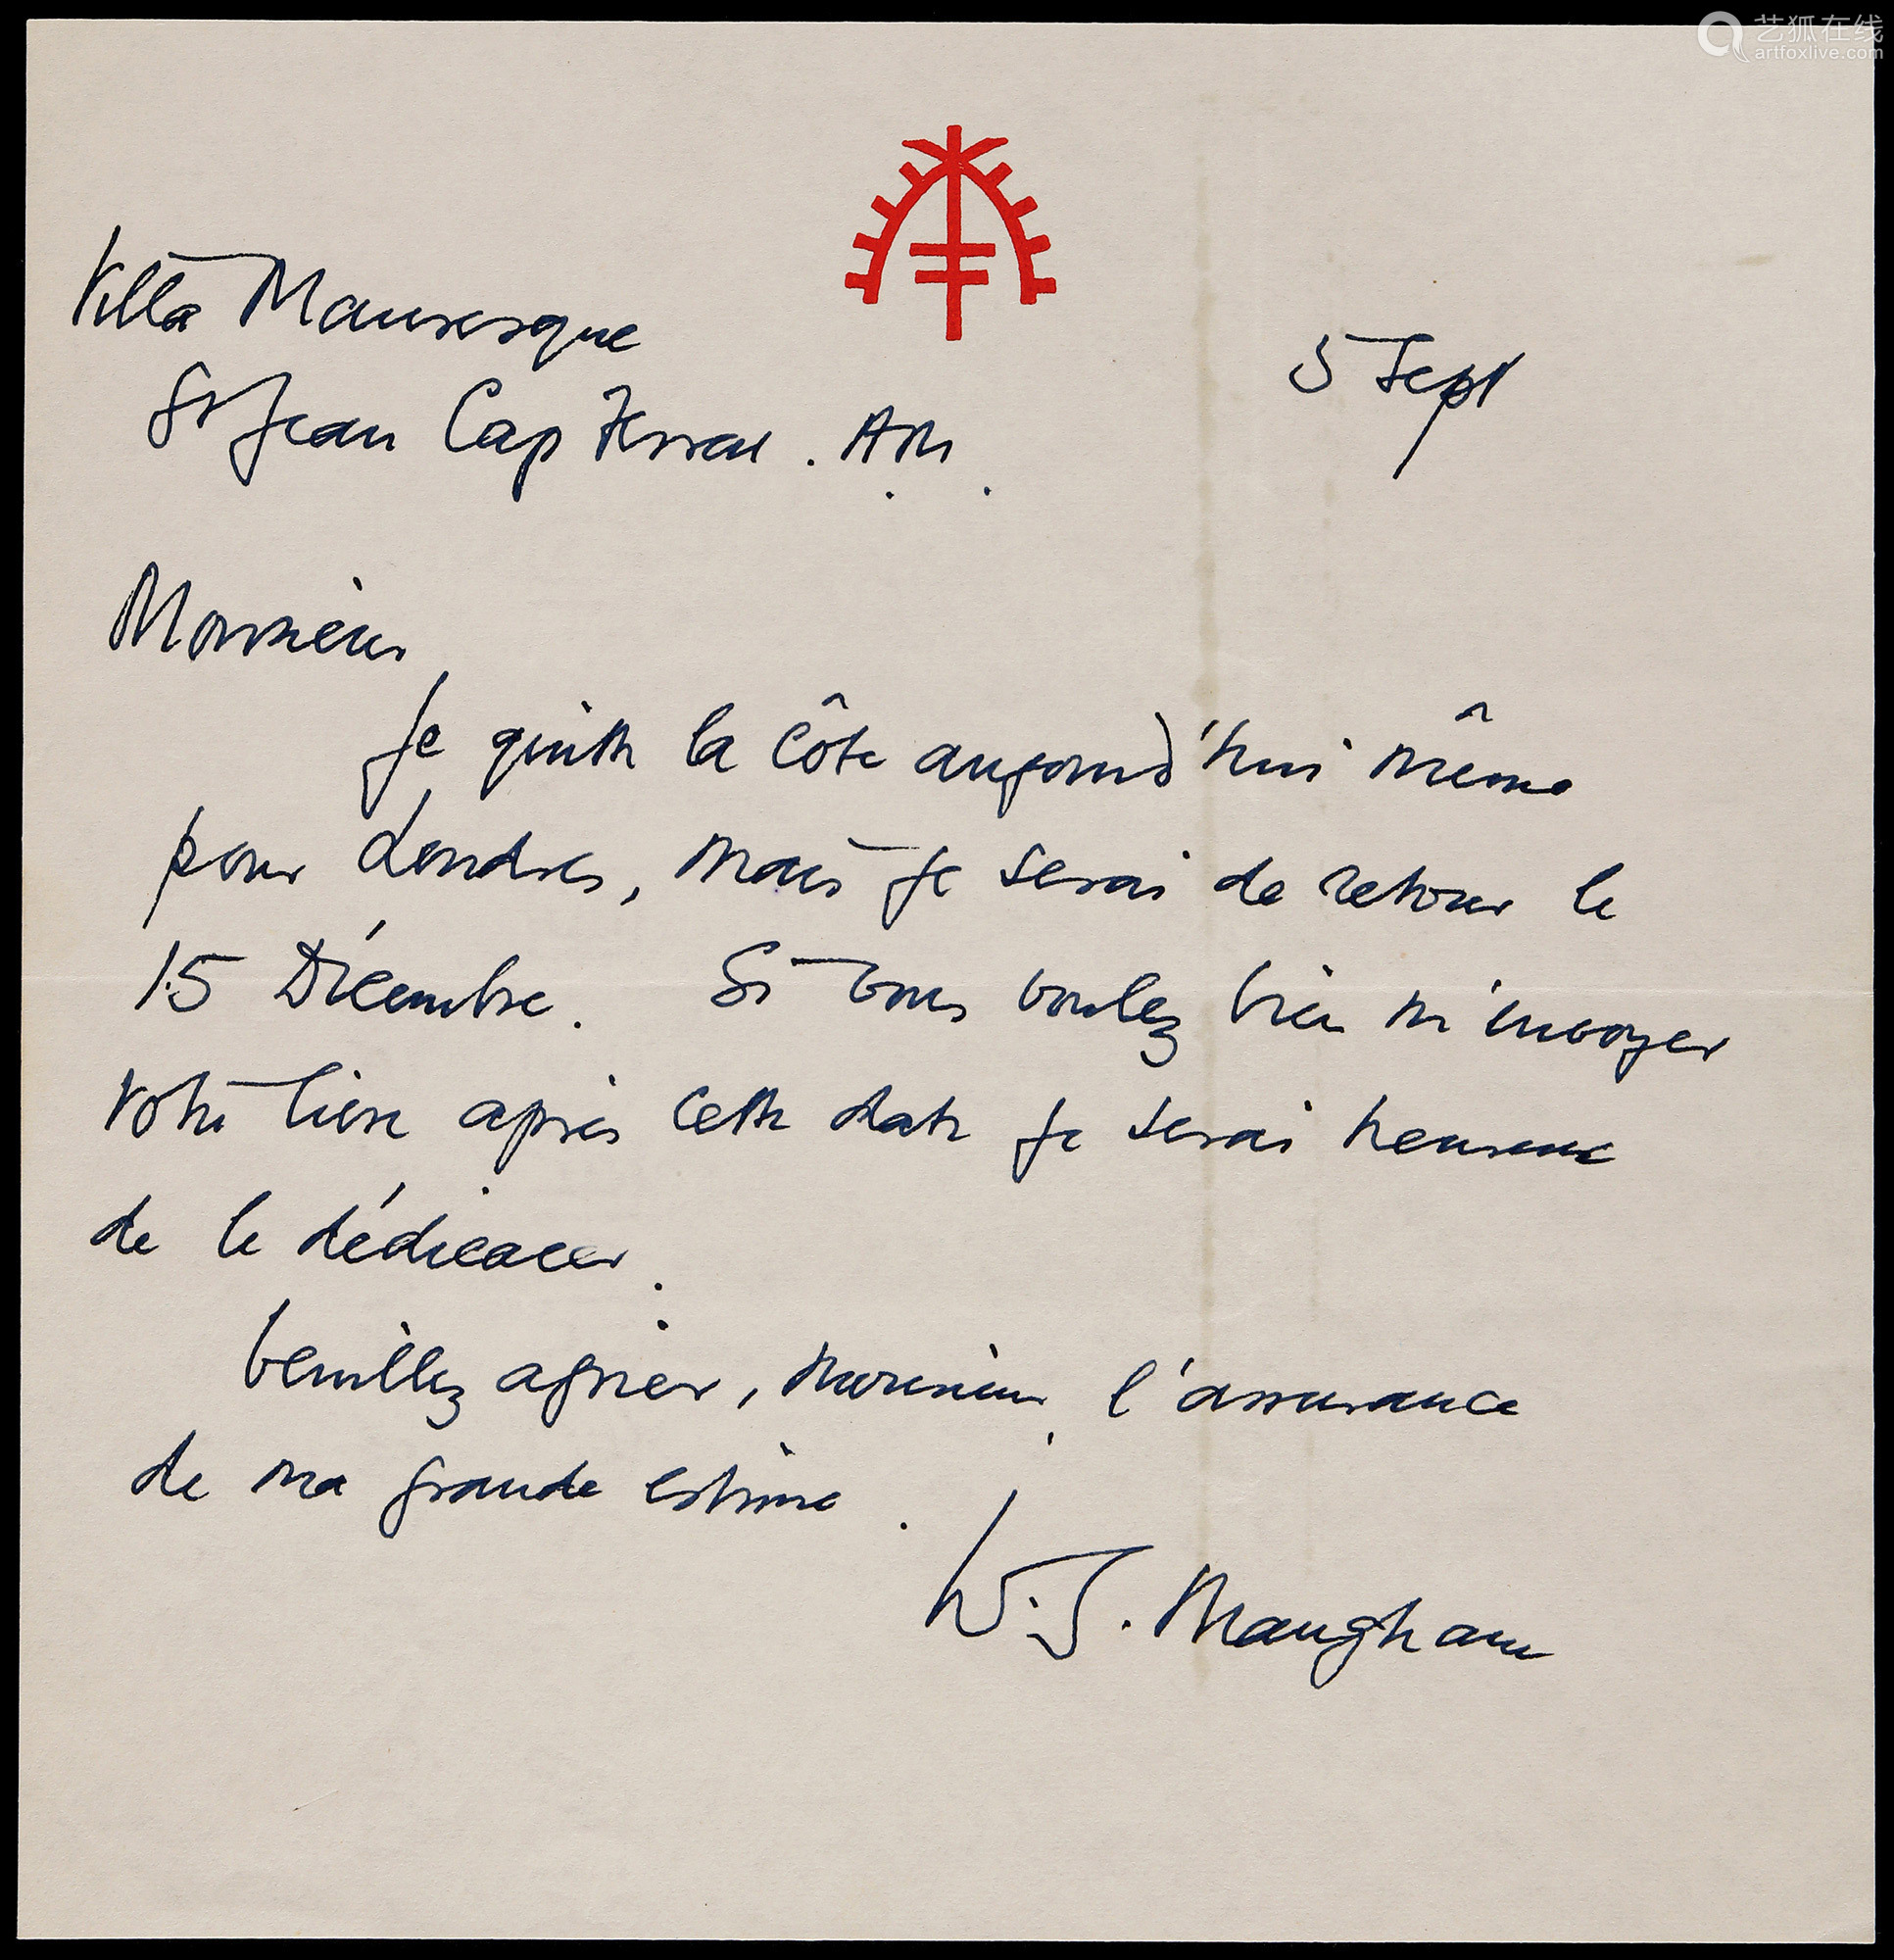 艺狐在线
artfoxlive.com
Villa Mauresque
St Jean Cap Ferrat. A.M.
5 Sept
Monsieur
Je quitte la Côte aujourd'hui même
pour Londres, mais je serai de retour le
15 Décembre. Si vous voulez bien m'envoyer
votre livre après cette date je serai heureux
de le dédicacer.
Veuillez agréer, Monsieur, l'assurance
de ma grande estime.
W.S. Maugham